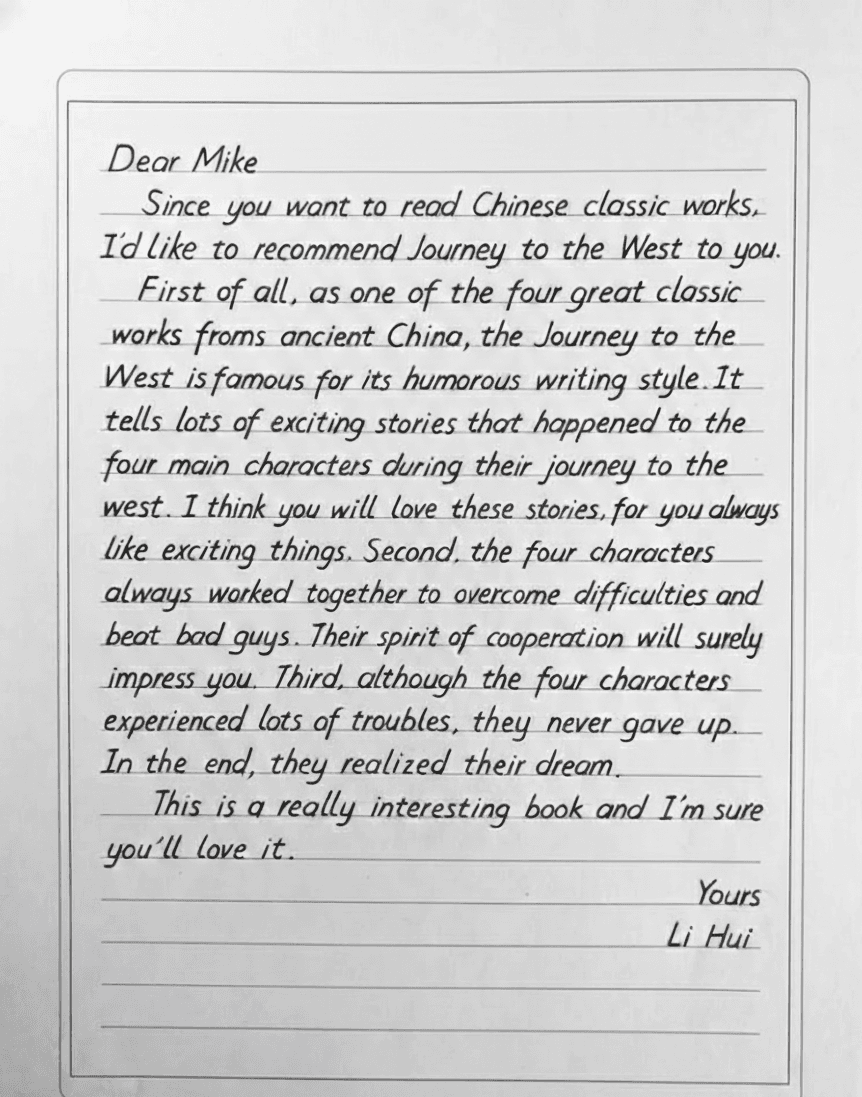 Dear Mike
Since you want to read Chinese classic works,
I'd like to recommend Journey to the West to you.
First of all, as one of the four great classic
works froms ancient China, the Journey to the
West is famous for its humorous writing style. It
tells lots of exciting stories that happened to the
four main characters during their journey to the
west. I think you will love these stories, for you always
like exciting things. Second, the four characters
always worked together to overcome difficulties and
beat bad guys. Their spirit of cooperation will surely
impress you. Third, although the four characters
experienced lots of troubles, they never gave up.
In the end, they realized their dream.
This is a really interesting book and I'm sure
you'll love it.
Yours
Li Hui